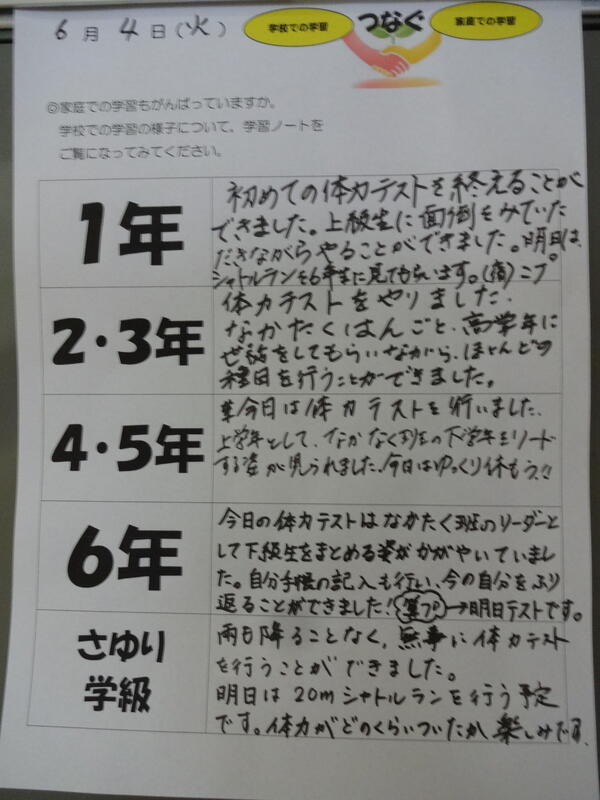 6月4日(火)
学校での学習
つなぐ
家庭での学習
◎家庭での学習もがんばっていますか。
学校での学習の様子について、学習ノートを
ご覧になってみてください。
1年
初めての体力テストを終えることが
できました。上級生に面倒をみていた
だきながらやることができました。明日は、
シャトルランを6年生に見てもらいます。(宿)こプ
2・3年
体力テストをやりました。
なかたくはんごと、高学年に
お世話をしてもらいながら、ほとんどの
種目を行うことができました。
4・5年
今日は体力テストを行いました。
上学年として、なかたく班の下学年をリード
する姿が見られました。今日はゆっくり休もう!!
6年
今日の体力テストはなかたく班のリーダーと
して下級生をまとめる姿がかがやいていまし
た。自分手帳の記入も行い、今の自分をふり
返ることができました!算プ→明日テストです。
さゆり
学級
雨も降ることなく、無事に体力テスト
を行うことができました。
明日は20mシャトルランを行う予定
です。体力がどのくらいついたか楽しみです。